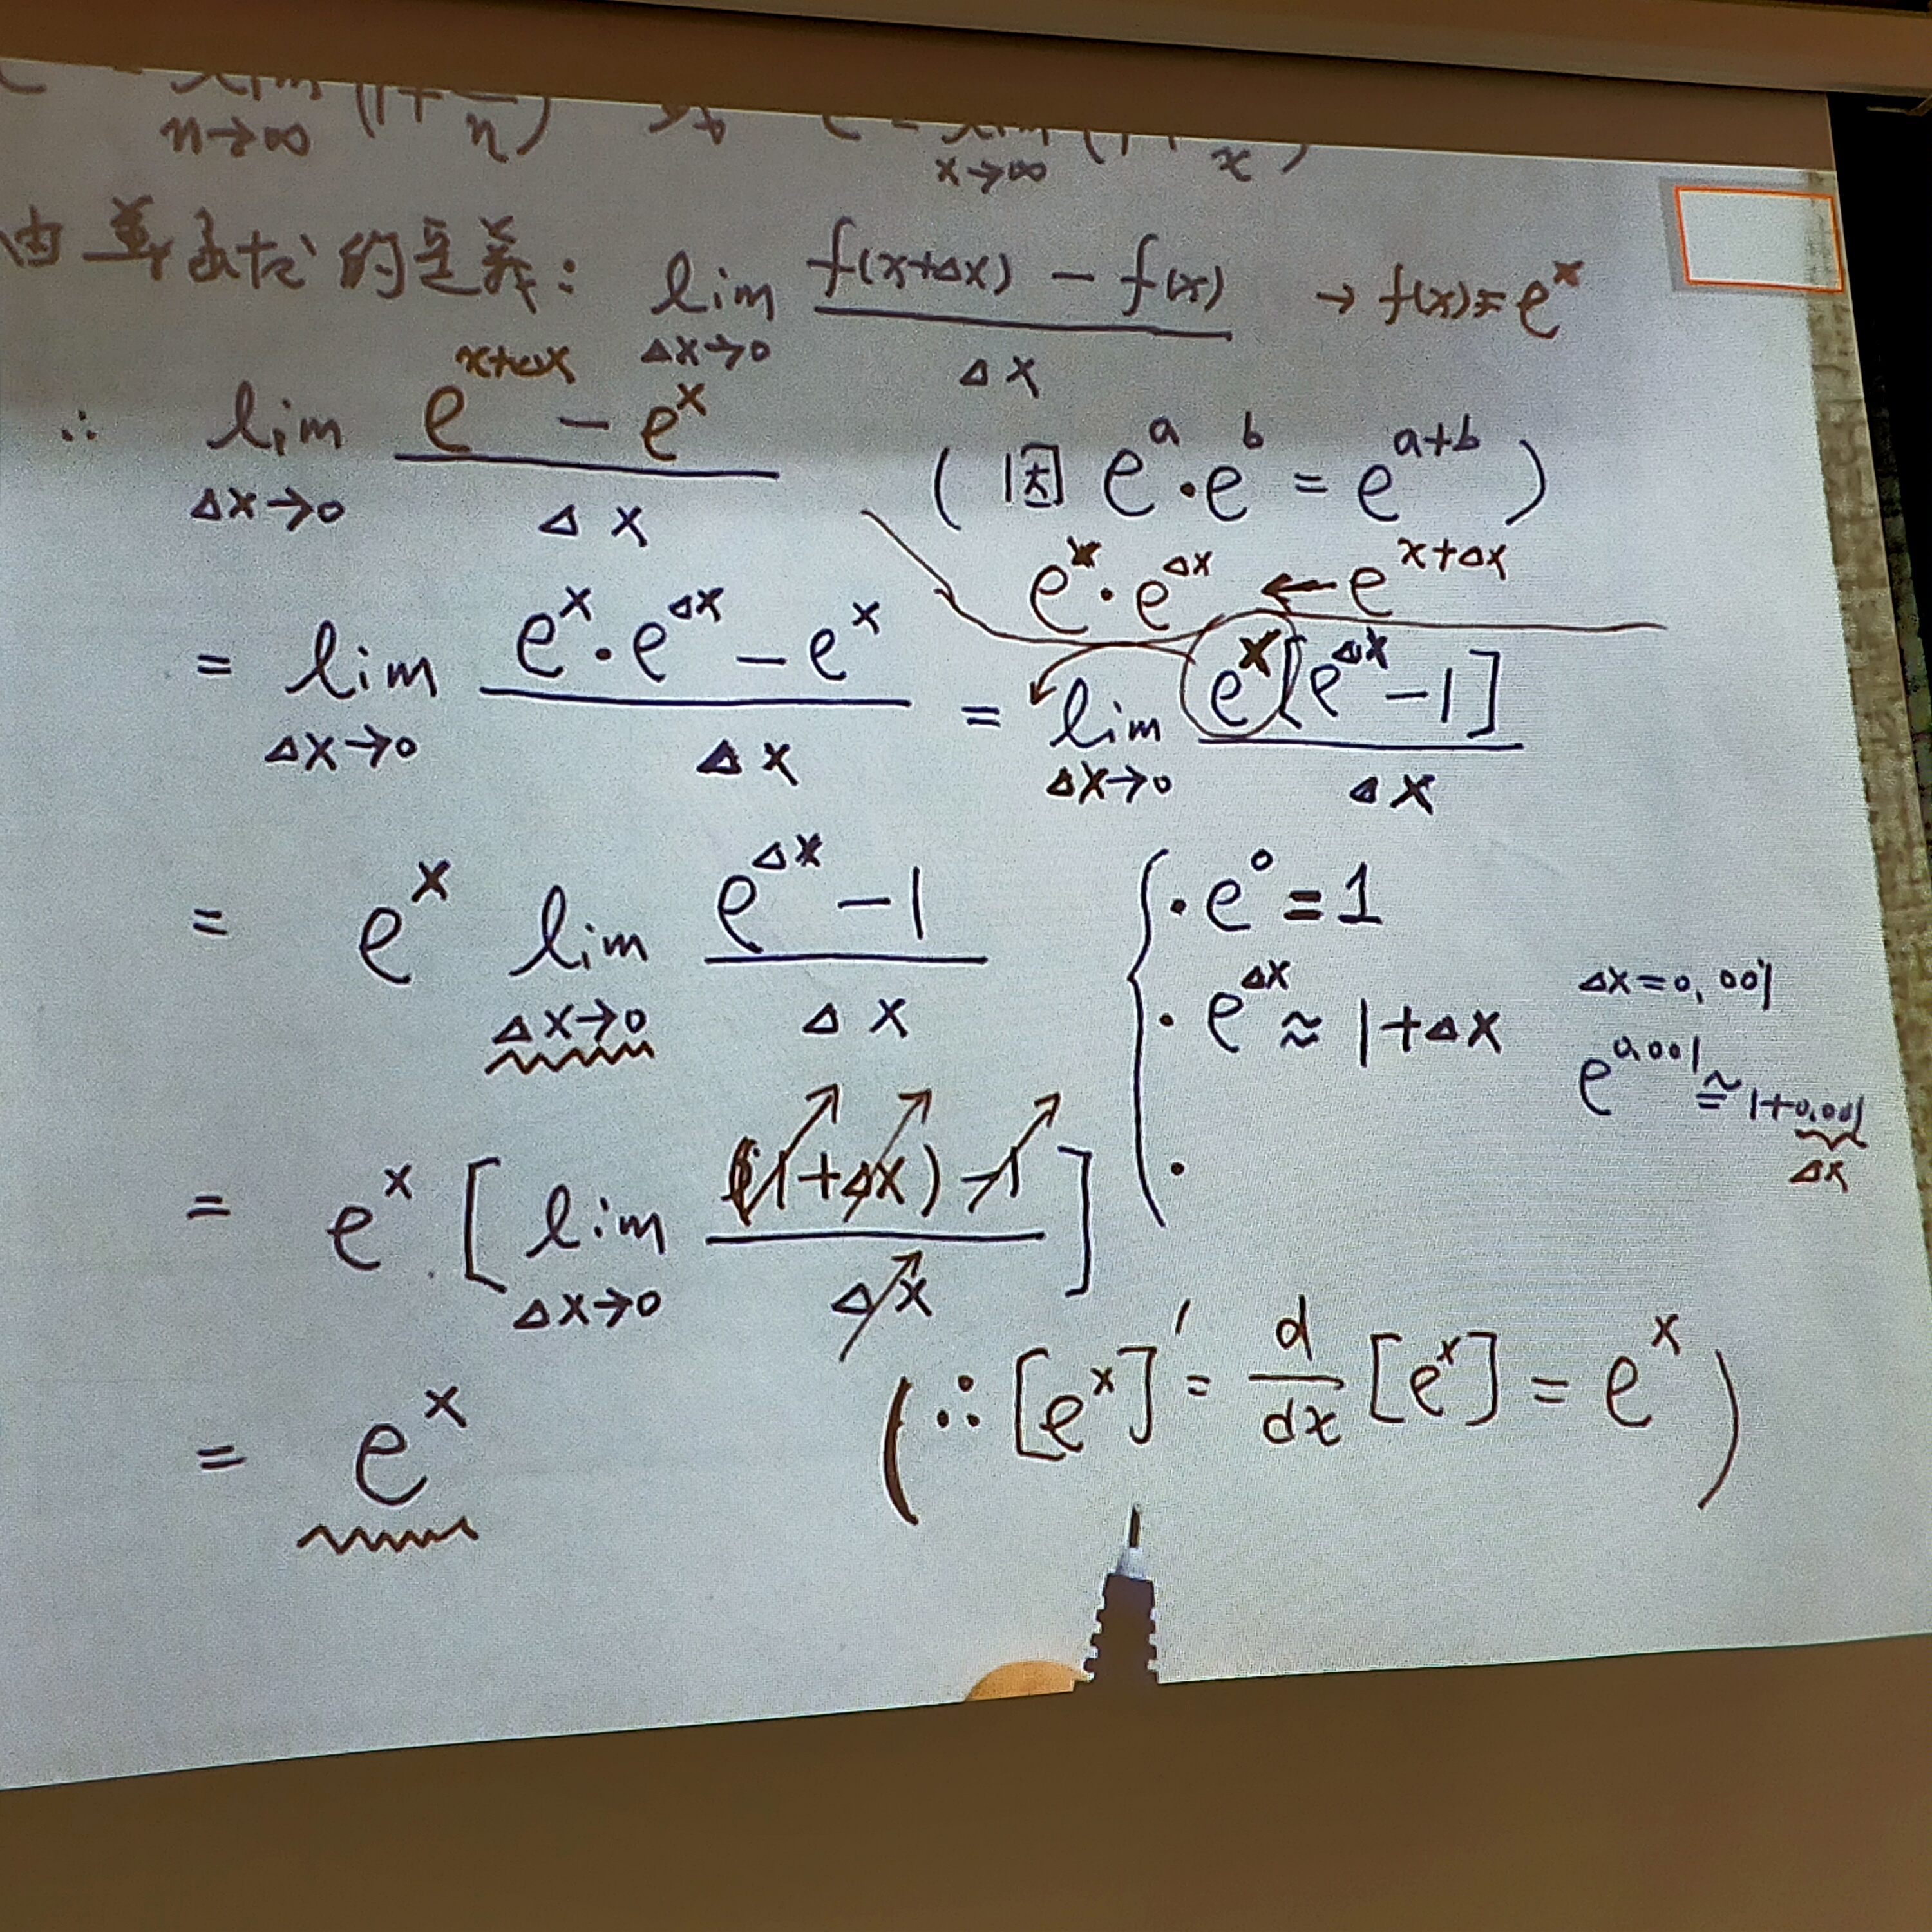 e = lim n→∞ (1+1/n) 或 e = lim x→∞ (1+1/x)
由導函式的定義: lim Δx→0 (f(x+Δx) − f(x))/Δx → f(x)=e^x
∴ lim Δx→0 (e^(x+Δx) − e^x)/Δx (因 e^a·e^b = e^(a+b))
e^x·e^Δx ← e^(x+Δx)
= lim Δx→0 (e^x·e^Δx − e^x)/Δx = lim Δx→0 e^x[e^Δx − 1]/Δx
= e^x lim Δx→0 (e^Δx − 1)/Δx
· e^0 = 1
· e^Δx ≈ 1+Δx
Δx=0.001
e^0.001 ≅ 1+0.001
Δx
·
= e^x [lim Δx→0 ((1+Δx) − 1)/Δx]
= e^x (∴ [e^x]' = d/dx [e^x] = e^x)